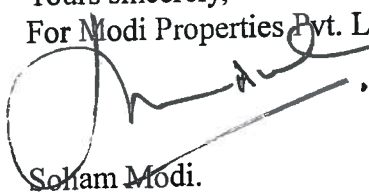 Yours sincerely,
For Modi Properties Pvt. L
Soham Modi.